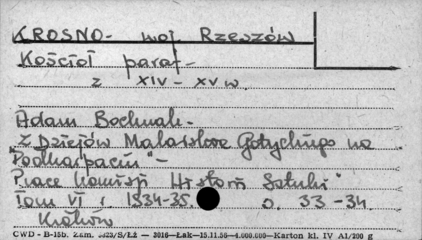 KROSNO - woj. Rzeszów
Kościół paraf -
z XIV - XV w.
Adam Bochnak -
"Z Dziejów Malarstwa Gotyckiego na
Podkarpaciu" -
Prace Komisji Historii Sztuki"
Tom VI, 1934-35. s. 33 - 34.
Kraków
CWD - B-15b. Zam. 5523/S/Łż — 3016—Łak—15.11.56—4.000.000—Karton kl. IV A1/200 g